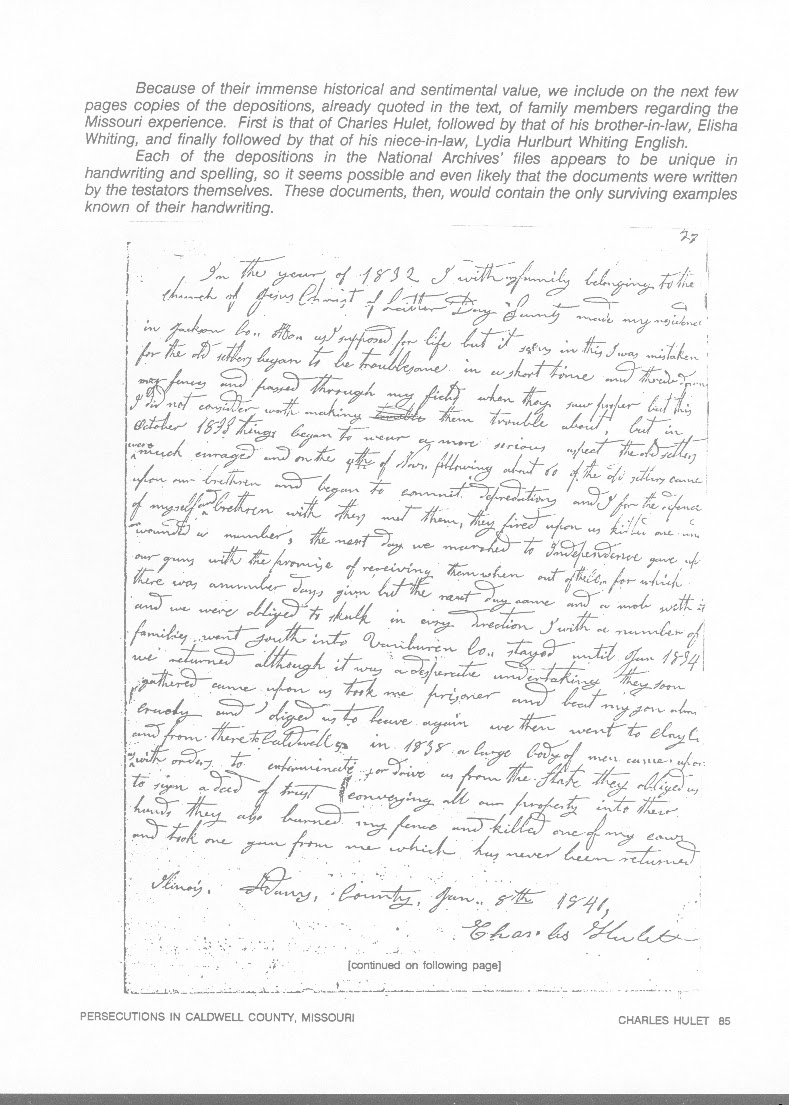 Because of their immense historical and sentimental value, we include on the next few
pages copies of the depositions, already quoted in the text, of family members regarding the
Missouri experience. First is that of Charles Hulet, followed by that of his brother-in-law, Elisha
Whiting, and finally followed by that of his niece-in-law, Lydia Hurlburt Whiting English.
Each of the depositions in the National Archives' files appears to be unique in
handwriting and spelling, so it seems possible and even likely that the documents were written
by the testators themselves. These documents, then, would contain the only surviving examples
known of their handwriting.
27
In the year of 1832 I with family belonging to the
Church of Jesus Christ of Latter Day Saints made my residence
in Jackson Co.. Mo as I supposed for life but it in this I was mistaken
for the old setlers began to be troublesome in a short time and
fences and passed through my field when they saw proper but this
I did not consider worth making them trouble about, but in
October 1833 things began to wear a more serious aspect the old setlers
were much enraged and on the 4th of Nov. following about 60 of the old setlers came
upon our brethren and began to commit depredations and I for the defence
of myself and brethren with others met them, they fired upon us killed one and
wounded a number, the next day we marched to Independence gave up
our guns with the promise of receiving them when out of the Co. for which
there was a number days given but the next day came and a mob with it
and we were obliged to skulk in every direction I with a number of
families went south into Vanburen Co.. stayed until Jan 1834
we returned although it was a desperate undertaking they soon
gathered came upon us took me prisoner and beat my son
cruely and obliged us to leave again we then went to Clay
and from there to Caldwell Co in 1838 a large body of men came upon
us with orders to exterminate or drive us from the State they obliged us
to sign a deed of trust conveying all our property into their
hands they also burned my fence and killed one of my cows
and took one gun from me which has never been returned
Ilinois, County, Jan.. 8th 1840,
Charles Hulet
[continued on following page]
PERSECUTIONS IN CALDWELL COUNTY, MISSOURI
CHARLES HULET 85